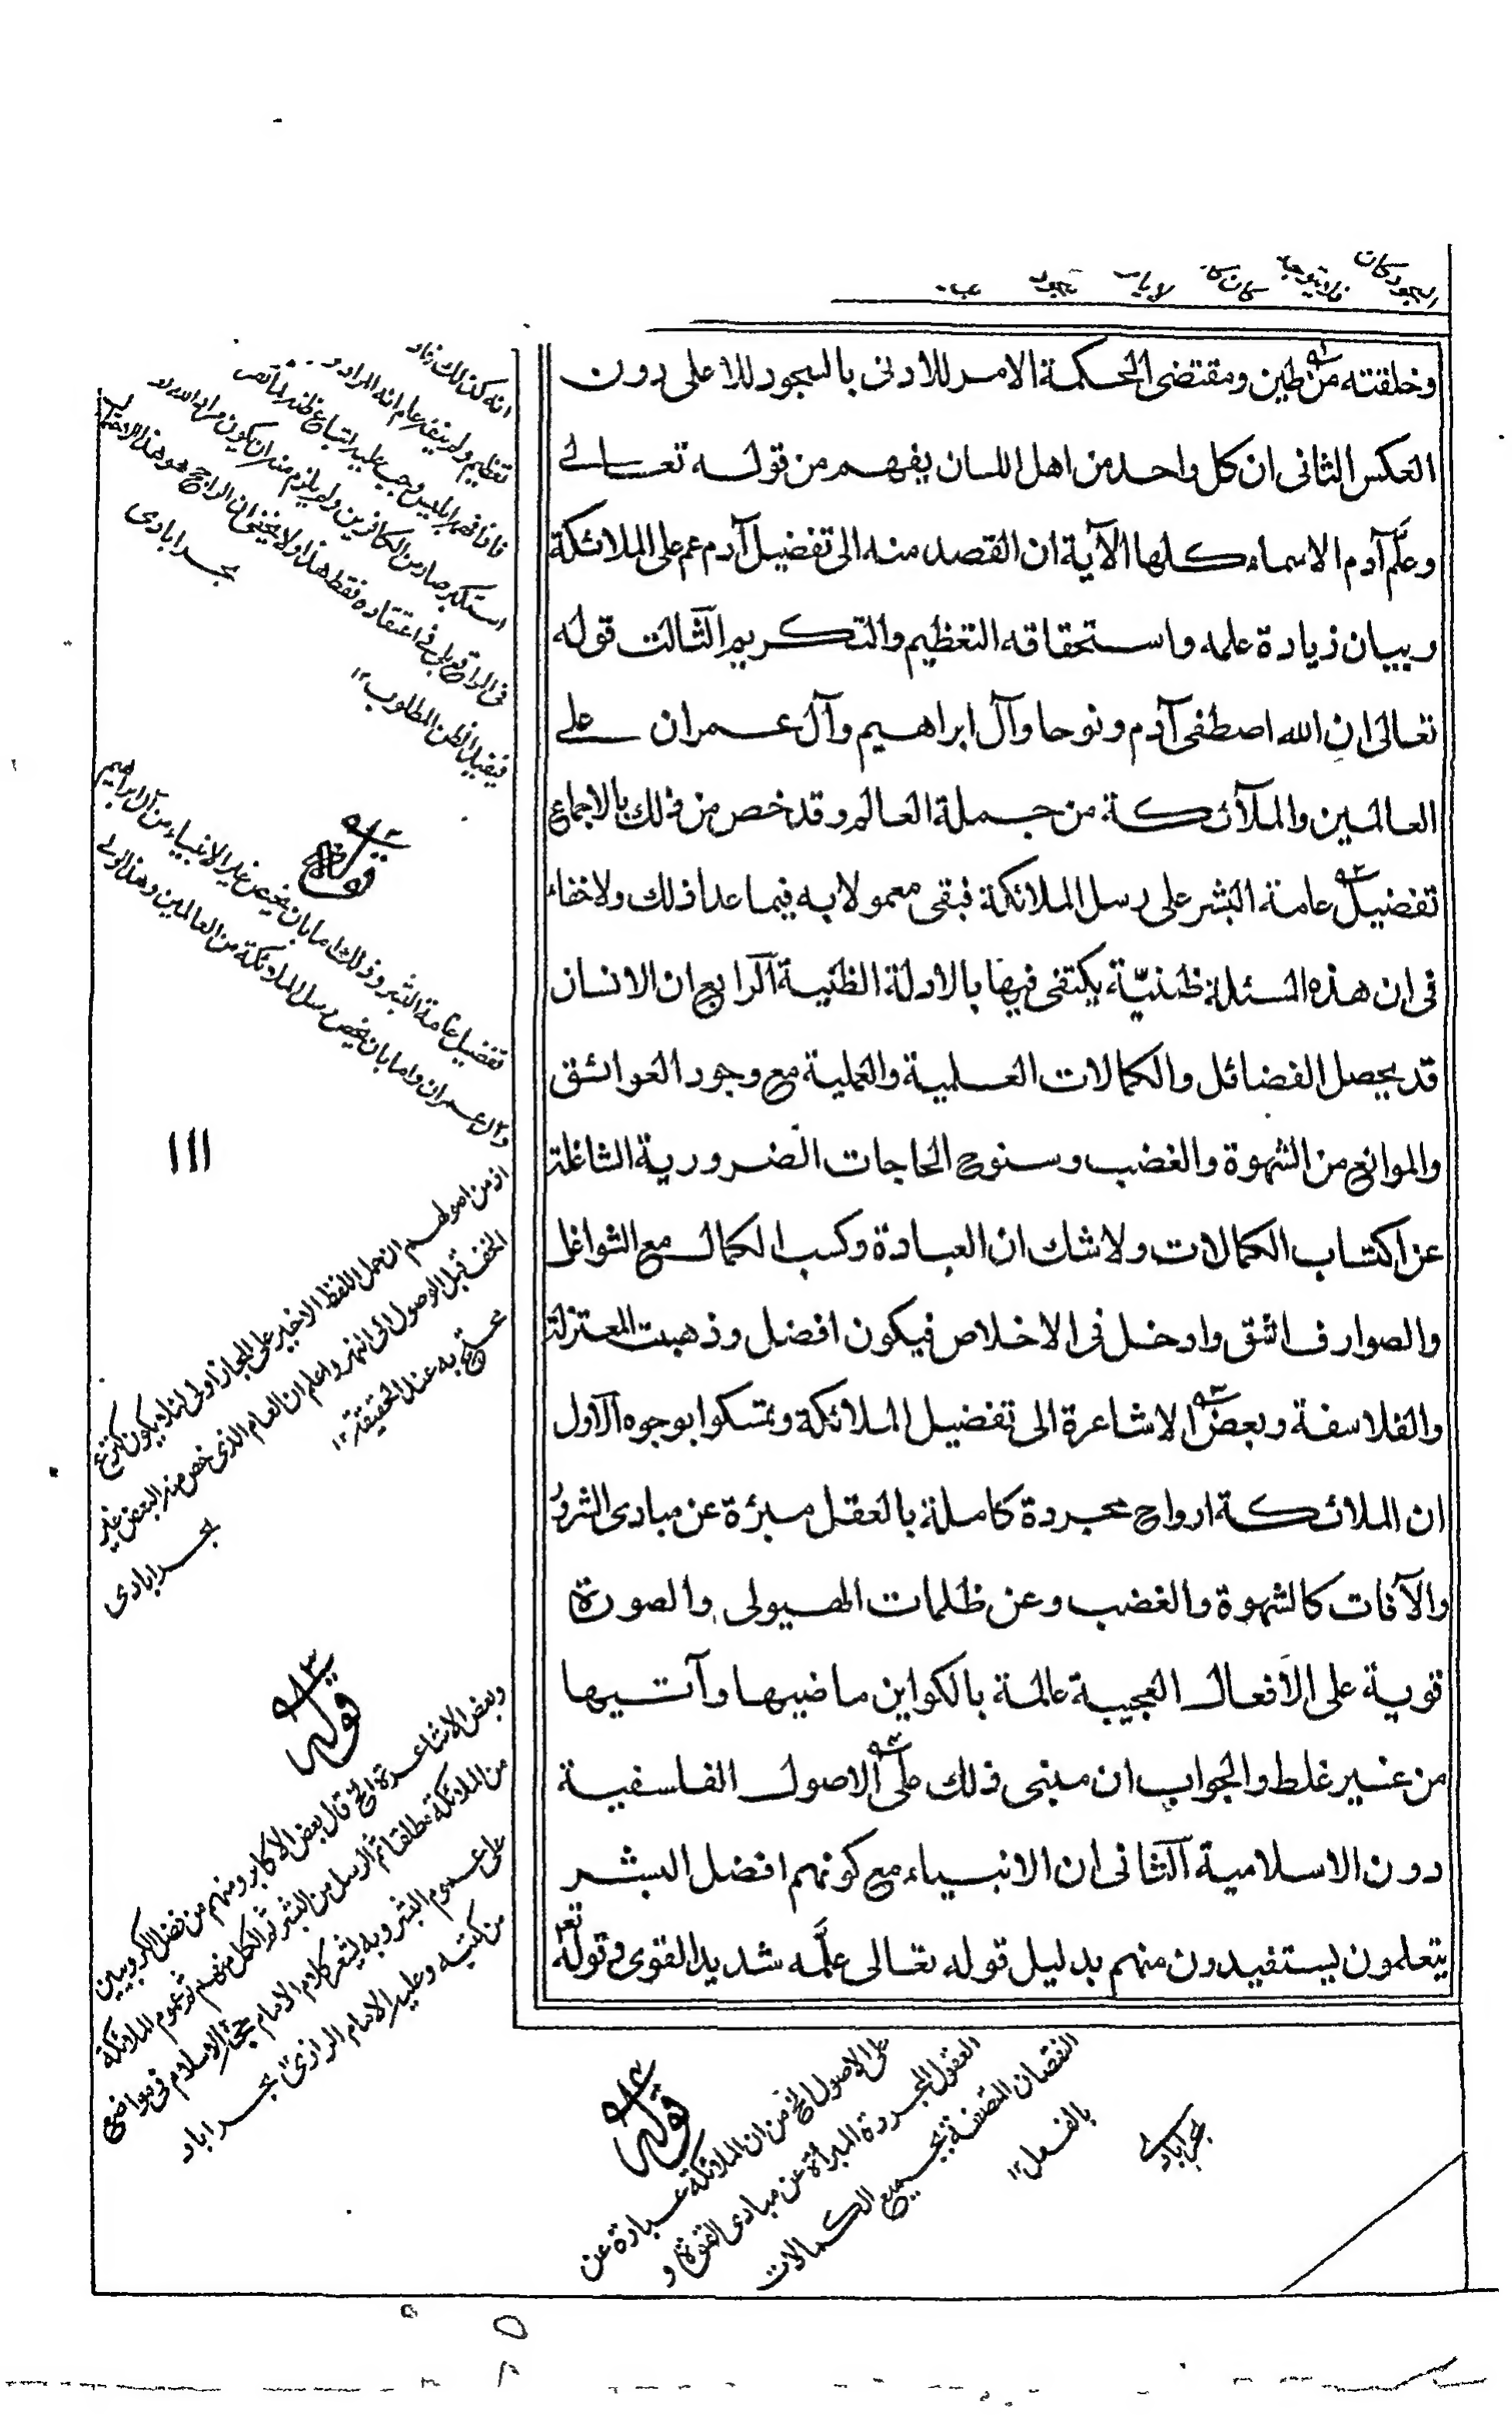 وخلقته من طين ومقتضى الحكمة الامر للادنى بالسجود للاعلى دون
العكس الثانى ان كل واحد من اهل اللسان يفهم من قوله تعالى
وعلّم آدم الاسماء كلها الآية ان القصد منه الى تفضيل آدم عم على الملائكة
وبيان زيادة علمه واستحقاقه التعظيم والتكريم الثالث قوله
تعالى ان الله اصطفى آدم ونوحا وآل ابراهيم وآل عمران على
العالمين والملائكة من جملة العالم وقد خص من ذلك بالاجماع
تفضيل عامة البشر على رسل الملائكة فبقى معمولا به فيما عدا ذلك ولا خفاء
فى ان هذه المسئلة ظنيّة يكتفى فيها بالادلة الظنية الرابع ان الانسان
قد يحصل الفضائل والكمالات العلمية والعملية مع وجود العوائق
والموانع من الشهوة والغضب وسنوح الحاجات الضرورية الشاغلة
عن اكتساب الكمالات ولا شك ان العبادة وكسب الكمال مع الشواغل
والصوارف اشق وادخل فى الاخلاص فيكون افضل وذهبت المعتزلة
والفلاسفة وبعض الاشاعرة الى تفضيل الملائكة وتمسكوا بوجوه الاول
ان الملائكة ارواح مجردة كاملة بالعقل مبرئة عن مبادى الشرور
والآفات كالشهوة والغضب وعن ظلمات الهيولى والصورة
قوية على الافعال العجيبة عالمة بالكواين ماضيها وآتيها
من غير غلط والجواب ان مبنى ذلك على الاصول الفلسفية
دون الاسلامية الثانى ان الانبياء مع كونهم افضل البشر
يتعلمون يستفيدون منهم بدليل قوله تعالى علّمه شديد القوى وقوله تعر
فيفيد الظن المطلوب ١٢
بحرابادى
٩١٢ قوله
تفضيل عامة البشر وذلك اما بان يخص غير الانبياء من آل ابراهيم
وآل عمران واما بان يخص رسل الملائكة من العالمين وهذا اولى
١١١
اذ من اصولهم ان حمل اللفظ الاخير على المجاز اولى لئلا يكون كنزع
الخف قبل الوصول الى النهر واعلم ان العام الذى خص منه البعض غير
بحرابادى
٩١٣ قوله
وبعض الاشاعرة الخ قال بعض الاكابر ومنهم من فضل الكروبيين
من الملائكة مطلقا ثم الرسل من البشر ثم الكمل منهم ثم عموم الملائكة
على عموم البشر وبه يشعر كلام الامام حجة الاسلام فى مواضع
من كتبه وعليه الامام الرازى ١٢ بحراباد
٩١٤ قوله
على الاصول الخ من ان الملائكة عبارة عن
العقول المجردة المبرأة عن مبادى القوة و
النقصان المتصفة بجميع الكمالات
بالفعل ١٢
بحرابادى